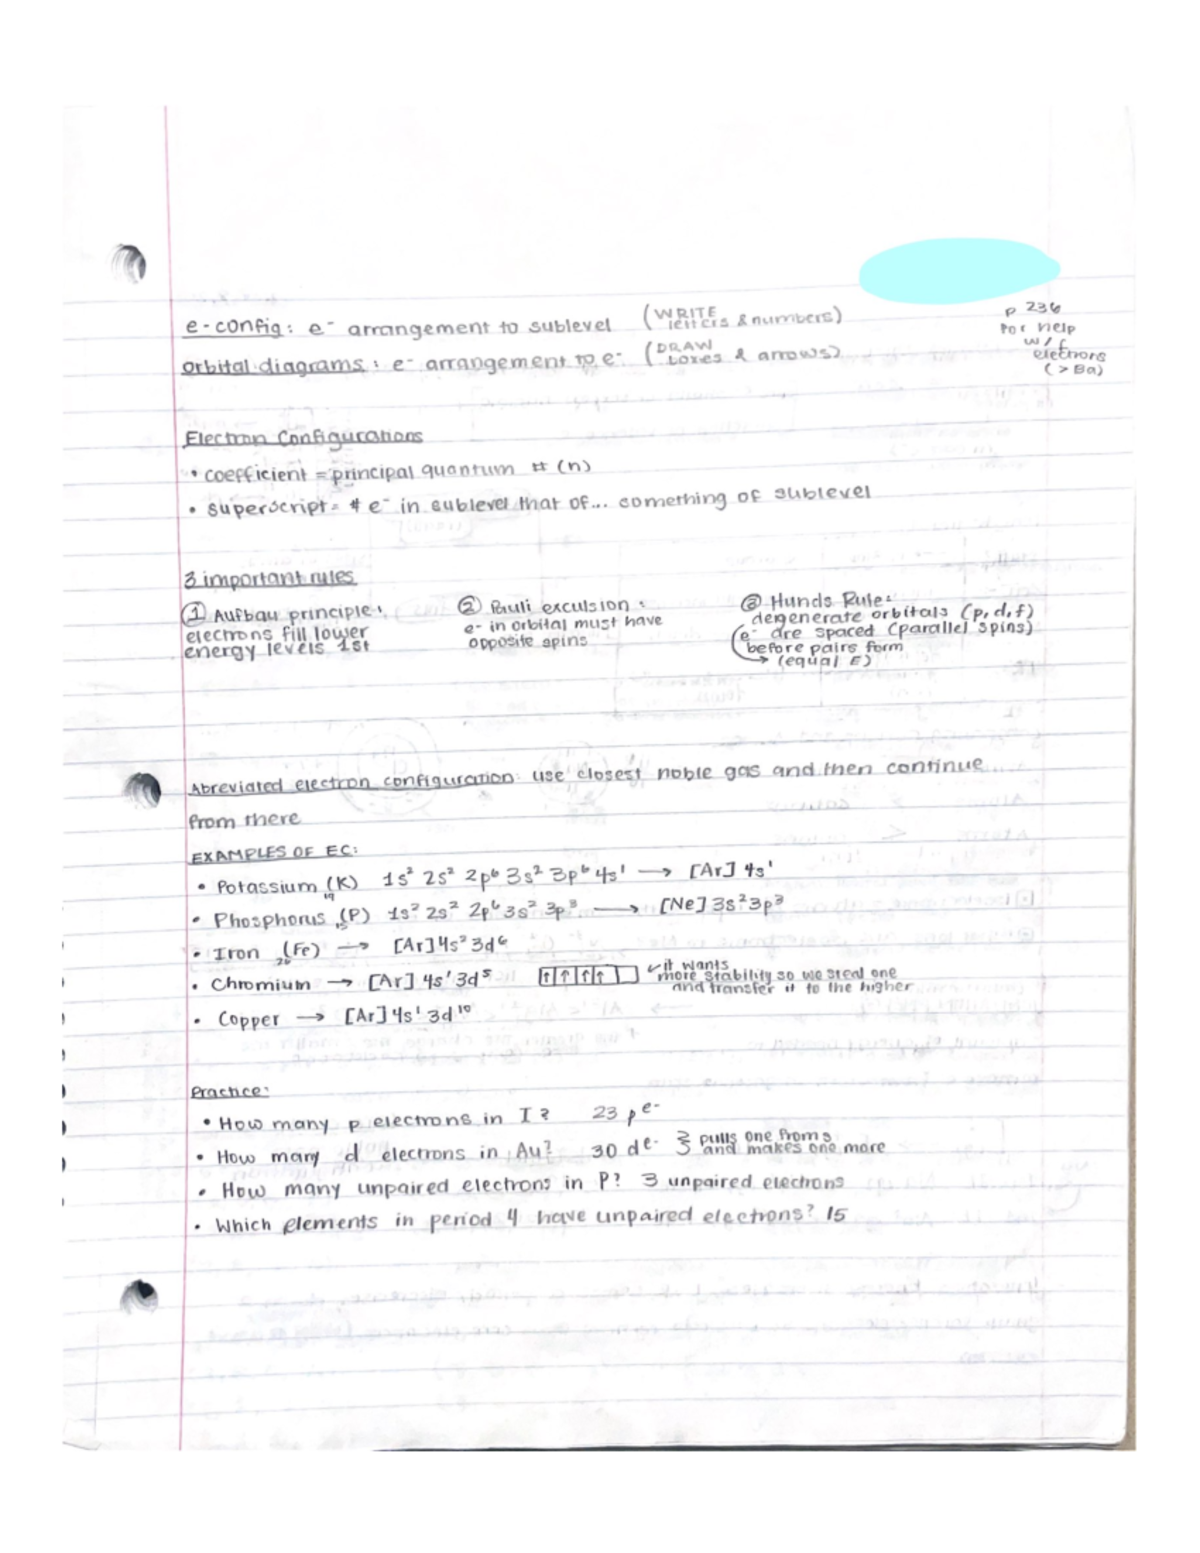 e-config: e⁻ arrangement to sublevel (WRITE letters & numbers)
orbital diagrams: e⁻ arrangement to e⁻ (DRAW boxes & arrows)
p 236
for help
w/ f
electrons
(> Ba)
Electron Configurations
• coefficient = principal quantum # (n)
• superscript = # e⁻ in sublevel that of... something of sublevel
3 important rules
① Aufbau principle:
electrons fill lower
energy levels 1st
② Pauli exculsion:
e- in orbital must have
opposite spins
③ Hunds Rule:
degenerate orbitals (p, d, f)
e⁻ are spaced (parallel spins)
before pairs form
→ (equal E)
Abreviated electron configuration: use closest noble gas and then continue
from there
EXAMPLES OF EC:
• Potassium ₁₉(K) 1s² 2s² 2p⁶ 3s² 3p⁶ 4s¹ → [Ar] 4s¹
• Phosphorus ₁₅(P) 1s² 2s² 2p⁶ 3s² 3p³ → [Ne] 3s² 3p³
• Iron ₂₆(Fe) → [Ar] 4s² 3d⁶
• Chromium → [Ar] 4s¹ 3d⁵ ↑ ↑ ↑ ↑ it wants
more stability so we steal one
and transfer it to the higher
• Copper → [Ar] 4s¹ 3d¹⁰
Practice:
• How many p electrons in I? 23 p e-
• How many d electrons in Au? 30 d e- } pulls one from s
and makes one more
• How many unpaired electrons in P? 3 unpaired electrons
• Which elements in period 4 have unpaired electrons? 15